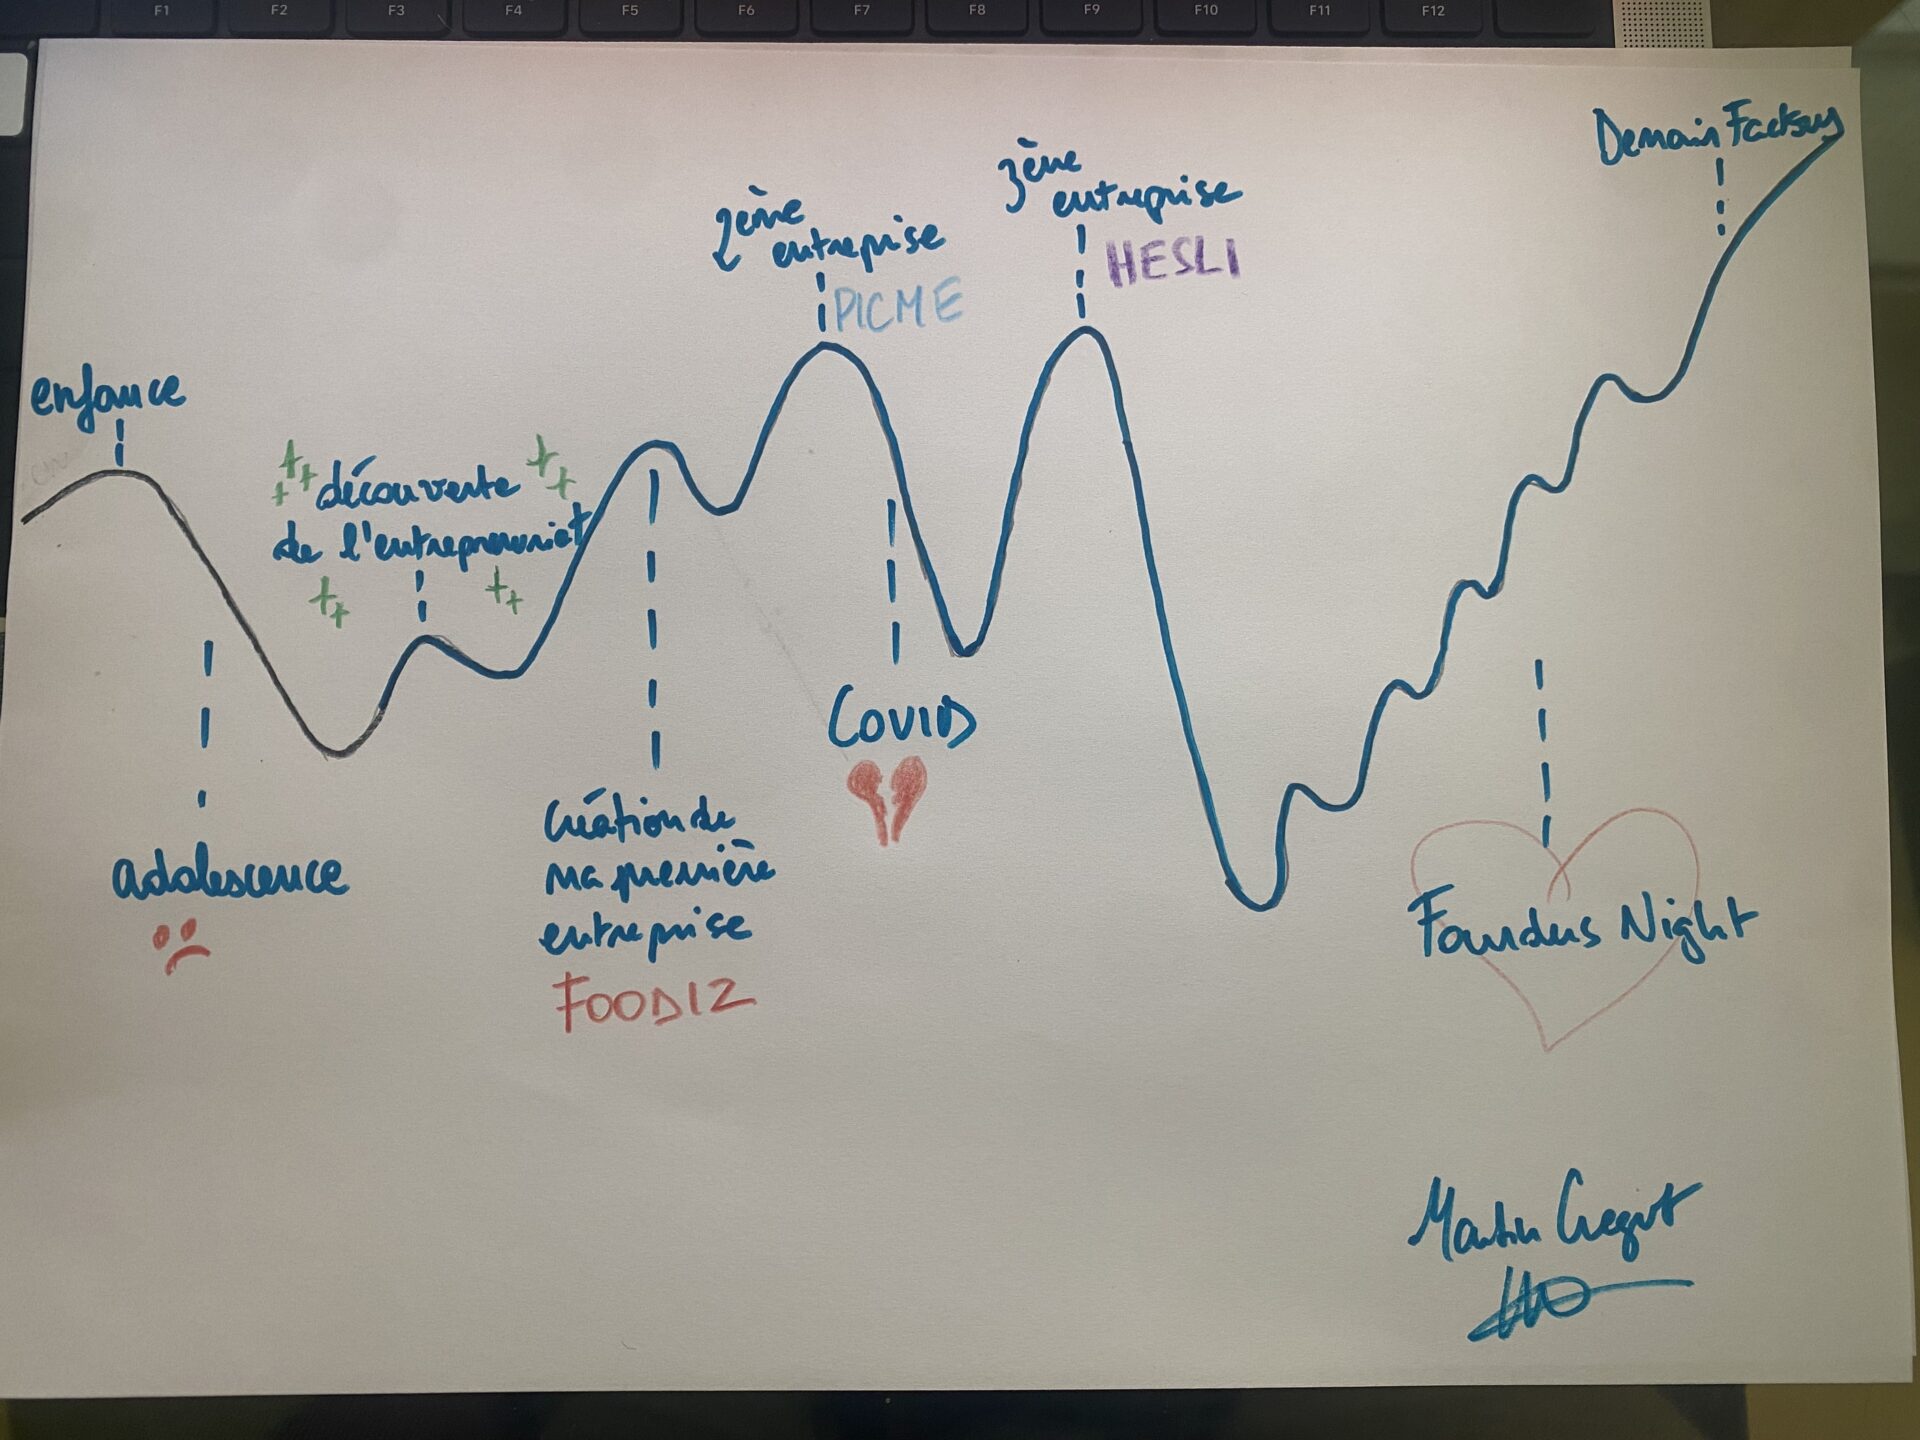 F1 F2 F3 F4 F5 F6 F7 F8 F9 F10 F11 F12
enfance
adolescence
découverte
de l'entrepreneuriat
Création de
ma première
entreprise
FOODIZ
2ème
entreprise
PICME
COVID
3ème
entreprise
HESLI
Founders Night
Demain Factory
Martin